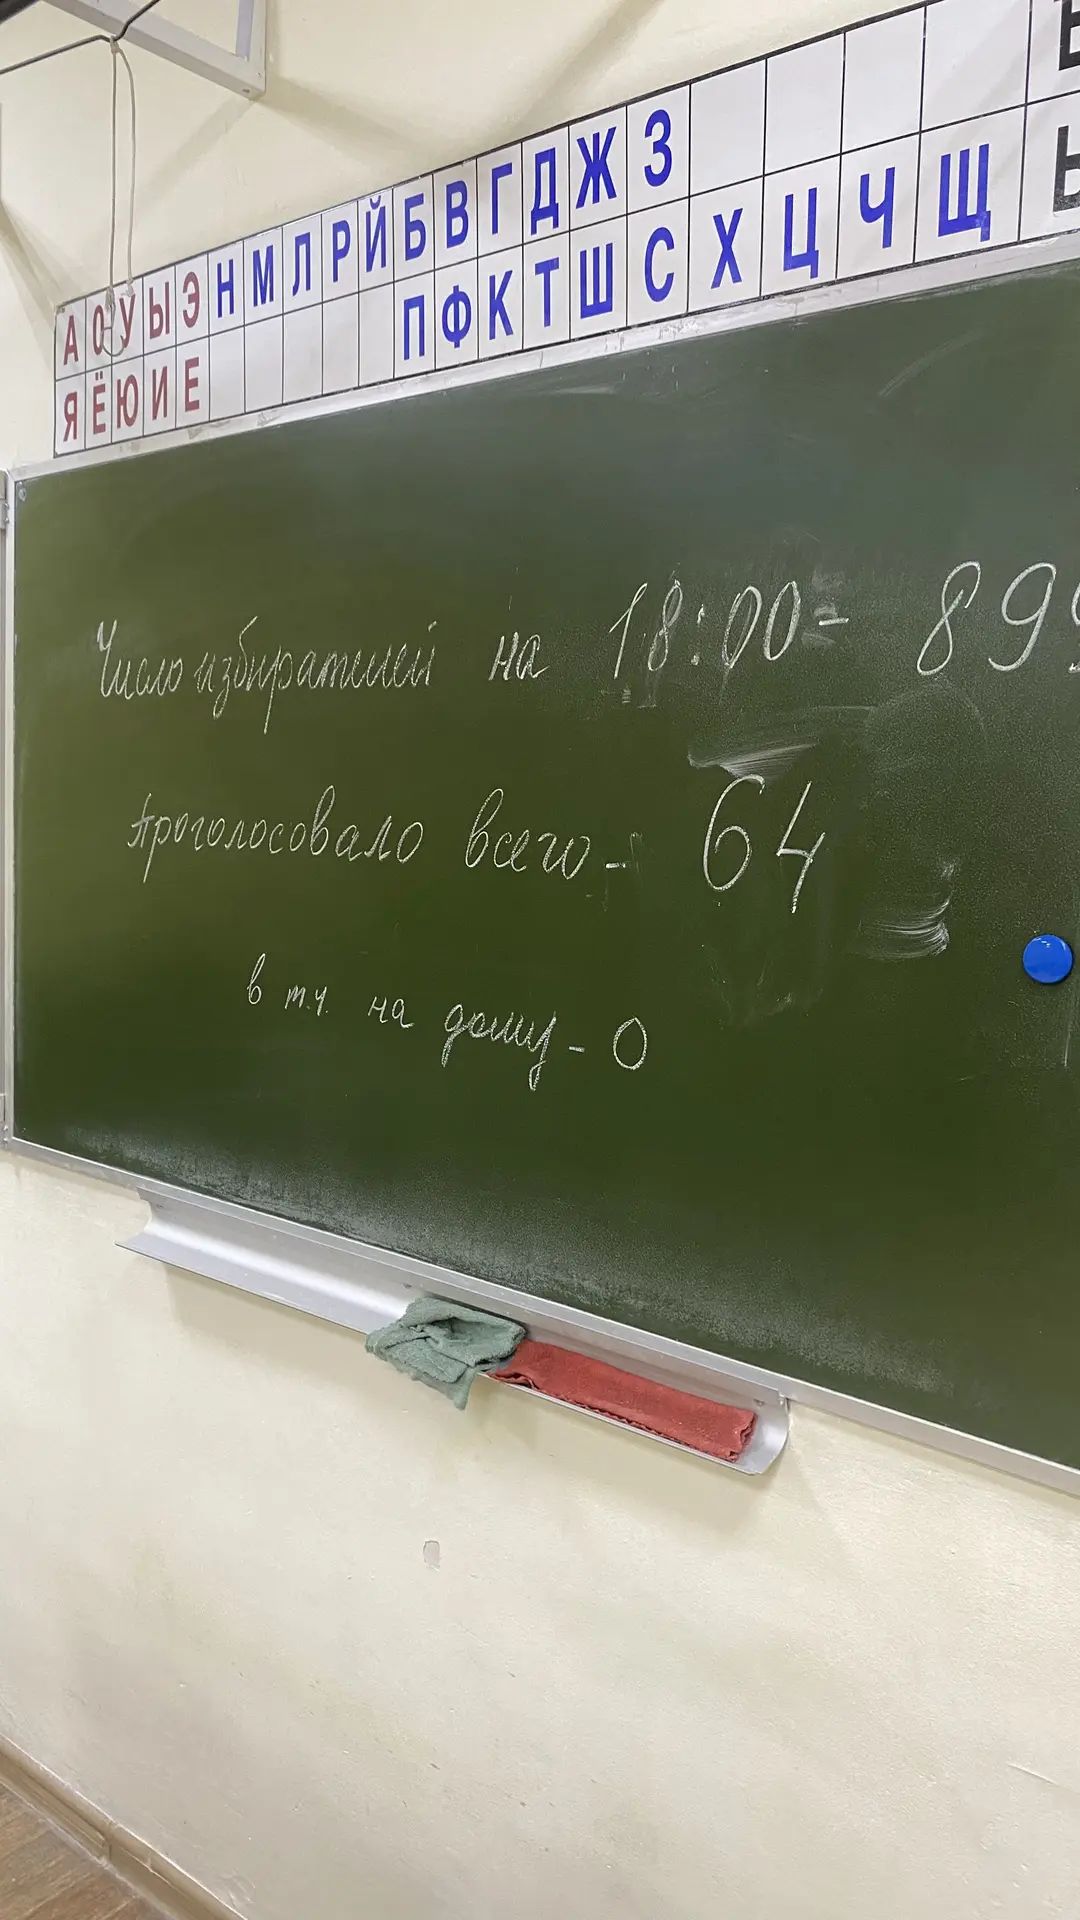 А О У Ы Э Н М Л Р Й Б В Г Д Ж З
Я Ё Ю И Е П Ф К Т Ш С Х Ц Ч Щ
Число избирателей на 18:00 = 899
Проголосовало всего - 64
в т.ч. на дому - 0